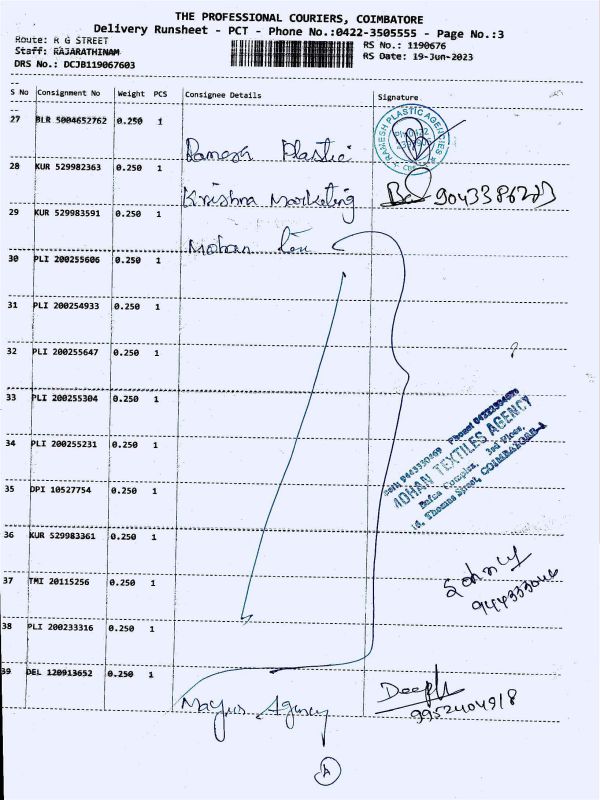 THE PROFESSIONAL COURIERS, COIMBATORE
Delivery Runsheet - PCT - Phone No.:0422-3505555 - Page No.:3
Route: R G STREET
RS No.: 1190676
Staff: RAJARATHINAM
RS Date: 19-Jun-2023
DRS No.: DCJB119067603
S No Consignment No Weight PCS Consignee Details Signature
27 BLR 5004652762 0.250 1
RAMESH PLASTIC AGENCIES
Ramesh Plastic
28 KUR 529982363 0.250 1
Krishna Marketing
29 KUR 529983591 0.250 1
Mohan
30 PLI 200255606 0.250 1
31 PLI 200254933 0.250 1
32 PLI 200255647 0.250 1
33 PLI 200255304 0.250 1
34 PLI 200255231 0.250 1
MOHAN TEXTILES AGENCY
Complex, 3rd Floor,
Thomas Street, COIMBATORE-1
35 DPI 10527754 0.250 1
36 KUR 529983361 0.250 1
37 TMI 20115256 0.250 1
38 PLI 200233316 0.250 1
39 DEL 120913652 0.250 1
Deeph
9952404918
Mayur Agency
A